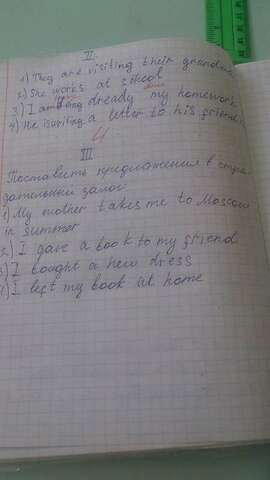 II
1) They are visiting their grandma
2) She works at school
3) I am doing already my homework
4) He is writing a letter to his friend
4
III
Поставить предложения в стра
дательный залог:
1) My mother takes me to Moscow
in summer
2) I gave a book to my friend
3) I bought a new dress
4) I left my book at home